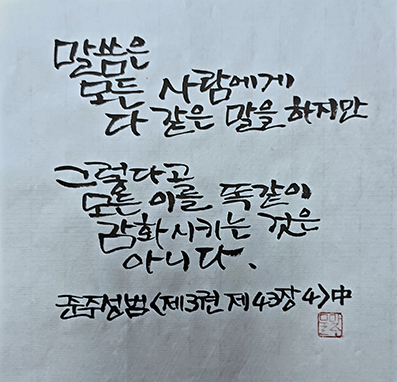 말씀은
모든 사람에게
다 같은 말을 하지만
그렇다고
모든 이를 똑같이
감화시키는 것은
아니다.
준주성범<제3권 제43장 4>中